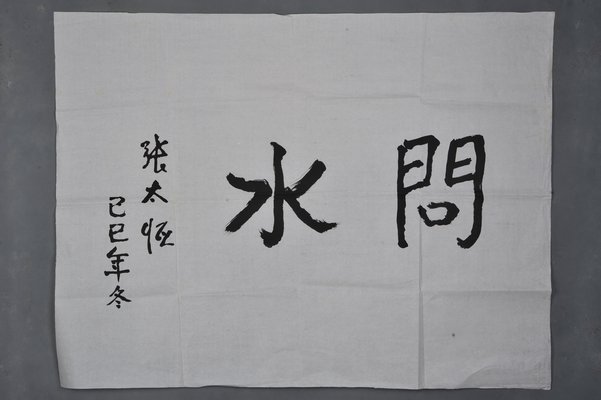 問水
張太恒
己巳年冬